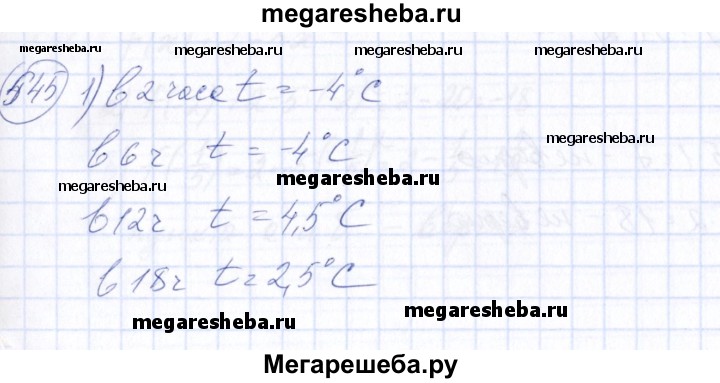 megaresheba.ru
megaresheba.ru megaresheba.ru
545 1) в 2 часа t = -4°C
megaresheba.ru
в 6 ч t = -4°C
megaresheba.ru
megaresheba.ru
в 12 ч t = 4,5°C
в 18 ч t = 2,5°C
megaresheba.ru
megaresheba.ru
Мегарешеба.ру